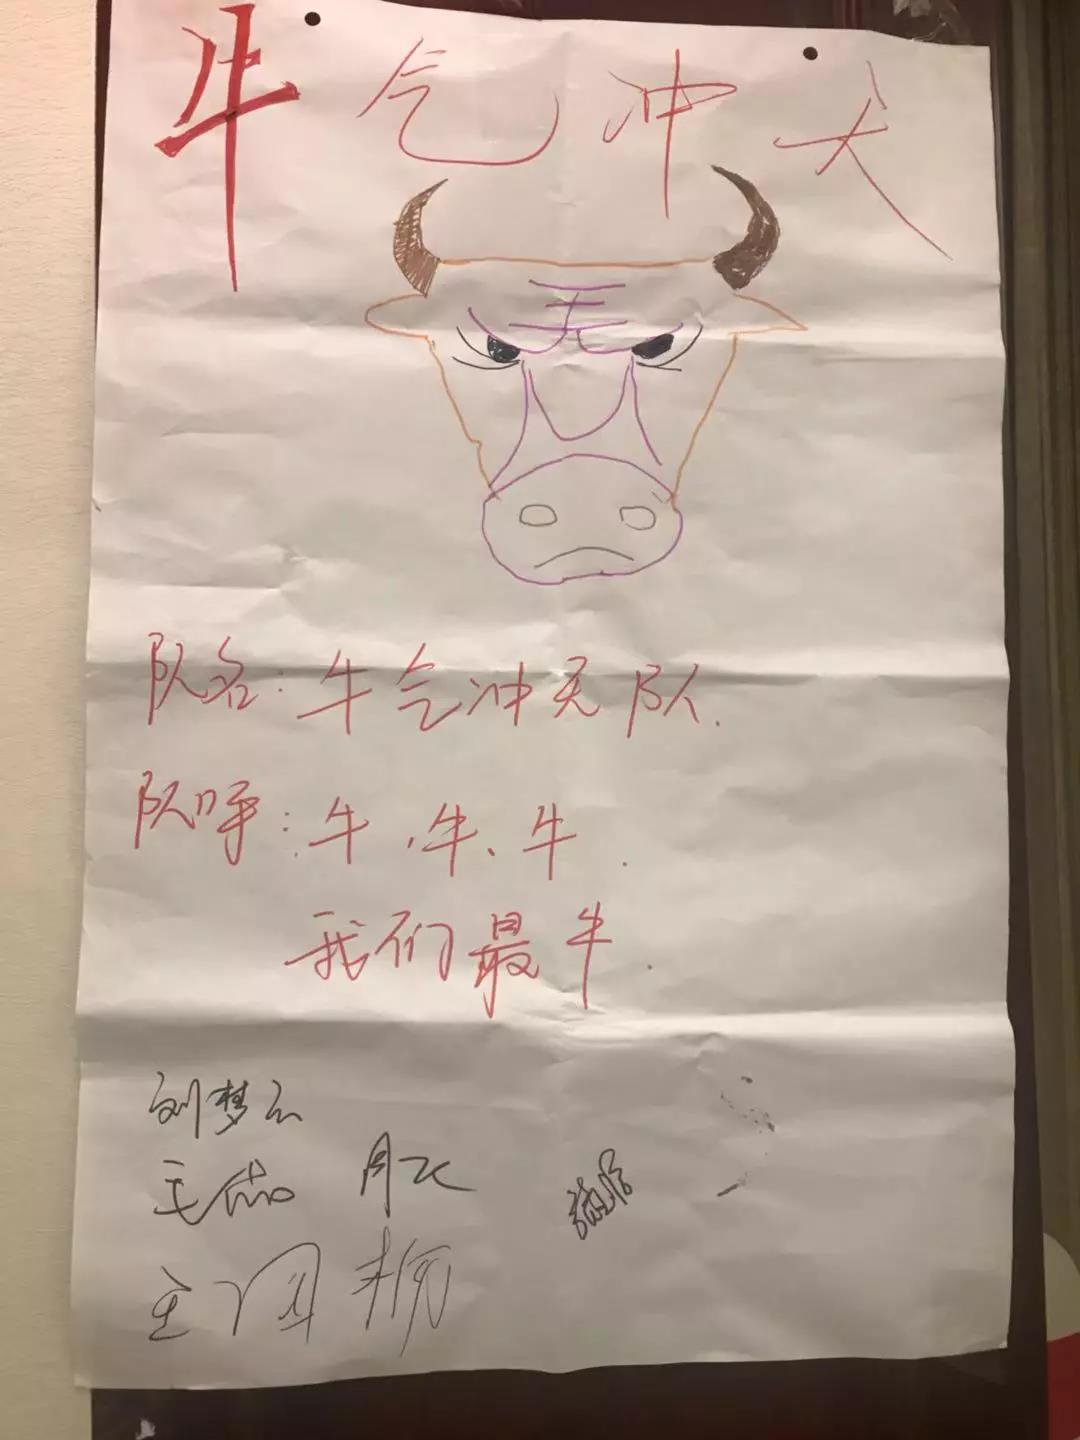 牛气冲天
队名:牛气冲天队.
队呼:牛、牛、牛.
我们最牛.
刘梦云